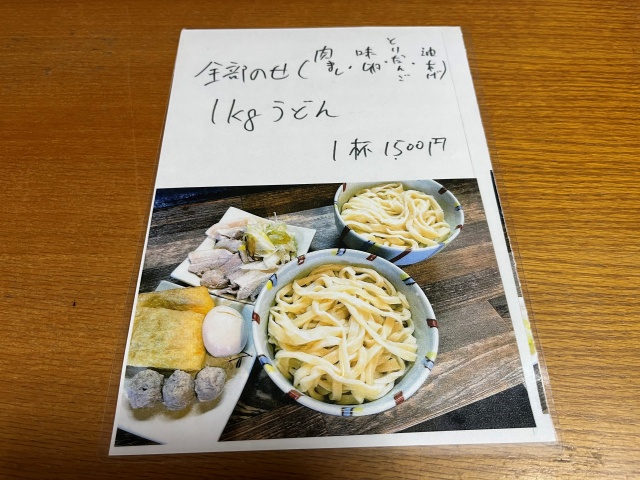 全部のせ(肉まし・味玉・とりだんご・油あげ)
1kgうどん
1杯 1,500円